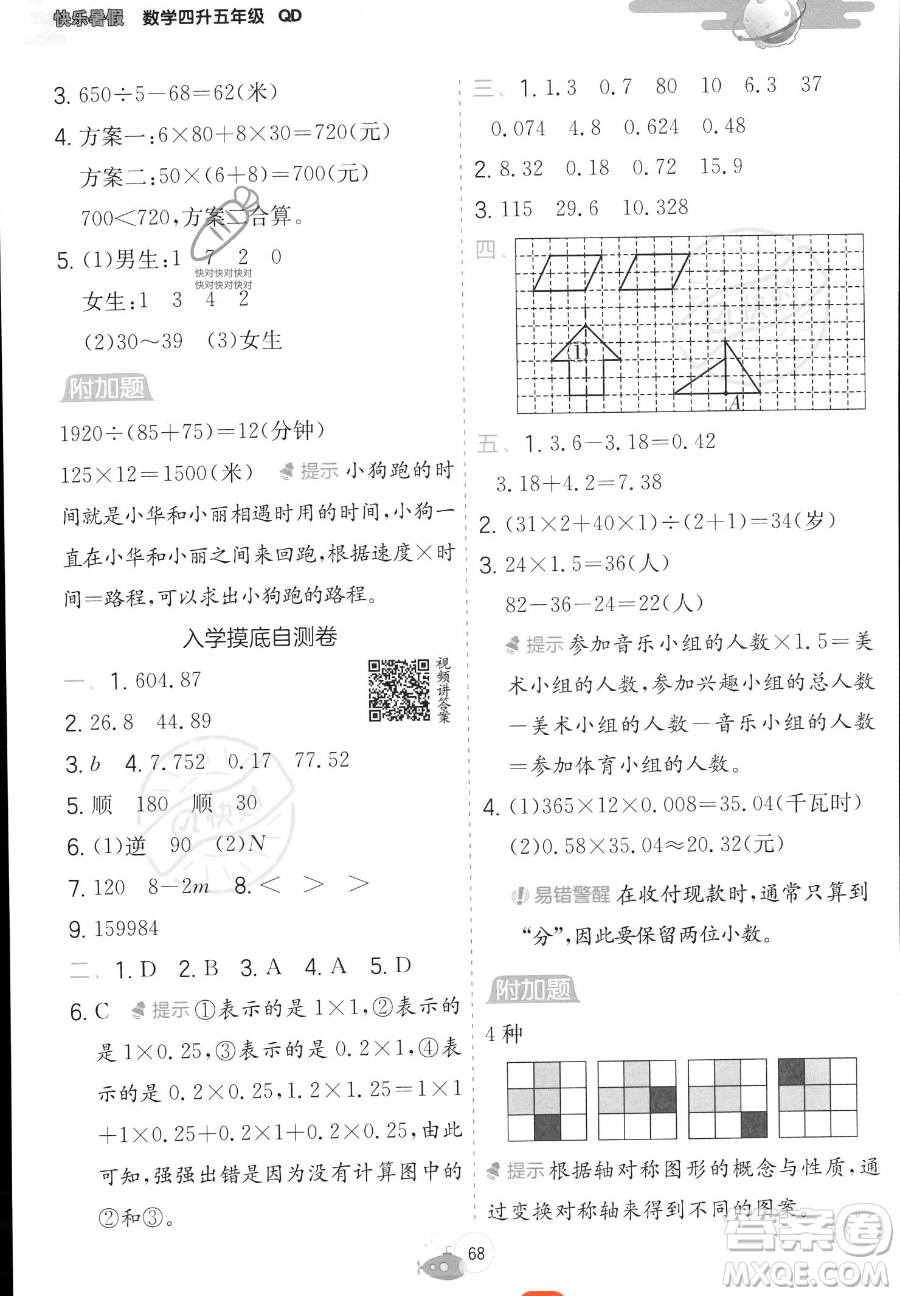 快乐暑假 数学四升五年级 QD
3. 650÷5-68=62(米)
4. 方案一:6×80+8×30=720(元)
方案二:50×(6+8)=700(元)
700<720,方案二合算。
5. (1)男生:1 7 2 0
女生:1 3 4 2
(2)30~39 (3)女生
快对快对快对
快对快对快对
附加题
1920÷(85+75)=12(分钟)
125×12=1500(米) 提示 小狗跑的时
间就是小华和小丽相遇时用的时间,小狗一
直在小华和小丽之间来回跑,根据速度×时
间=路程,可以求出小狗跑的路程。
入学摸底自测卷
视频讲答案
一、1. 604.87
2. 26.8 44.89
3. b 4. 7.752 0.17 77.52
5. 顺 180 顺 30
6. (1)逆 90 (2)N
7. 120 8-2m 8. < > >
9. 159984
二、1. D 2. B 3. A 4. A 5. D
6. C 提示 ①表示的是1×1,②表示的
是1×0.25,③表示的是0.2×1,④表
示的是0.2×0.25,1.2×1.25=1×1
+1×0.25+0.2×1+0.2×0.25,由此
可知,强强出错是因为没有计算图中的
②和③。
三、1. 1.3 0.7 80 10 6.3 37
0.074 4.8 0.624 0.48
2. 8.32 0.18 0.72 15.9
3. 115 29.6 10.328
四、
①
A
五、1. 3.6-3.18=0.42
3.18+4.2=7.38
2. (31×2+40×1)÷(2+1)=34(岁)
3. 24×1.5=36(人)
82-36-24=22(人)
提示 参加音乐小组的人数×1.5=美
术小组的人数,参加兴趣小组的总人数
-美术小组的人数-音乐小组的人数
=参加体育小组的人数。
4. (1)365×12×0.008=35.04(千瓦时)
(2)0.58×35.04≈20.32(元)
易错警醒 在收付现款时,通常只算到
“分”,因此要保留两位小数。
附加题
4种
提示 根据轴对称图形的概念与性质,通
过变换对称轴来得到不同的图案。
68
答案卷
MXQE.COM